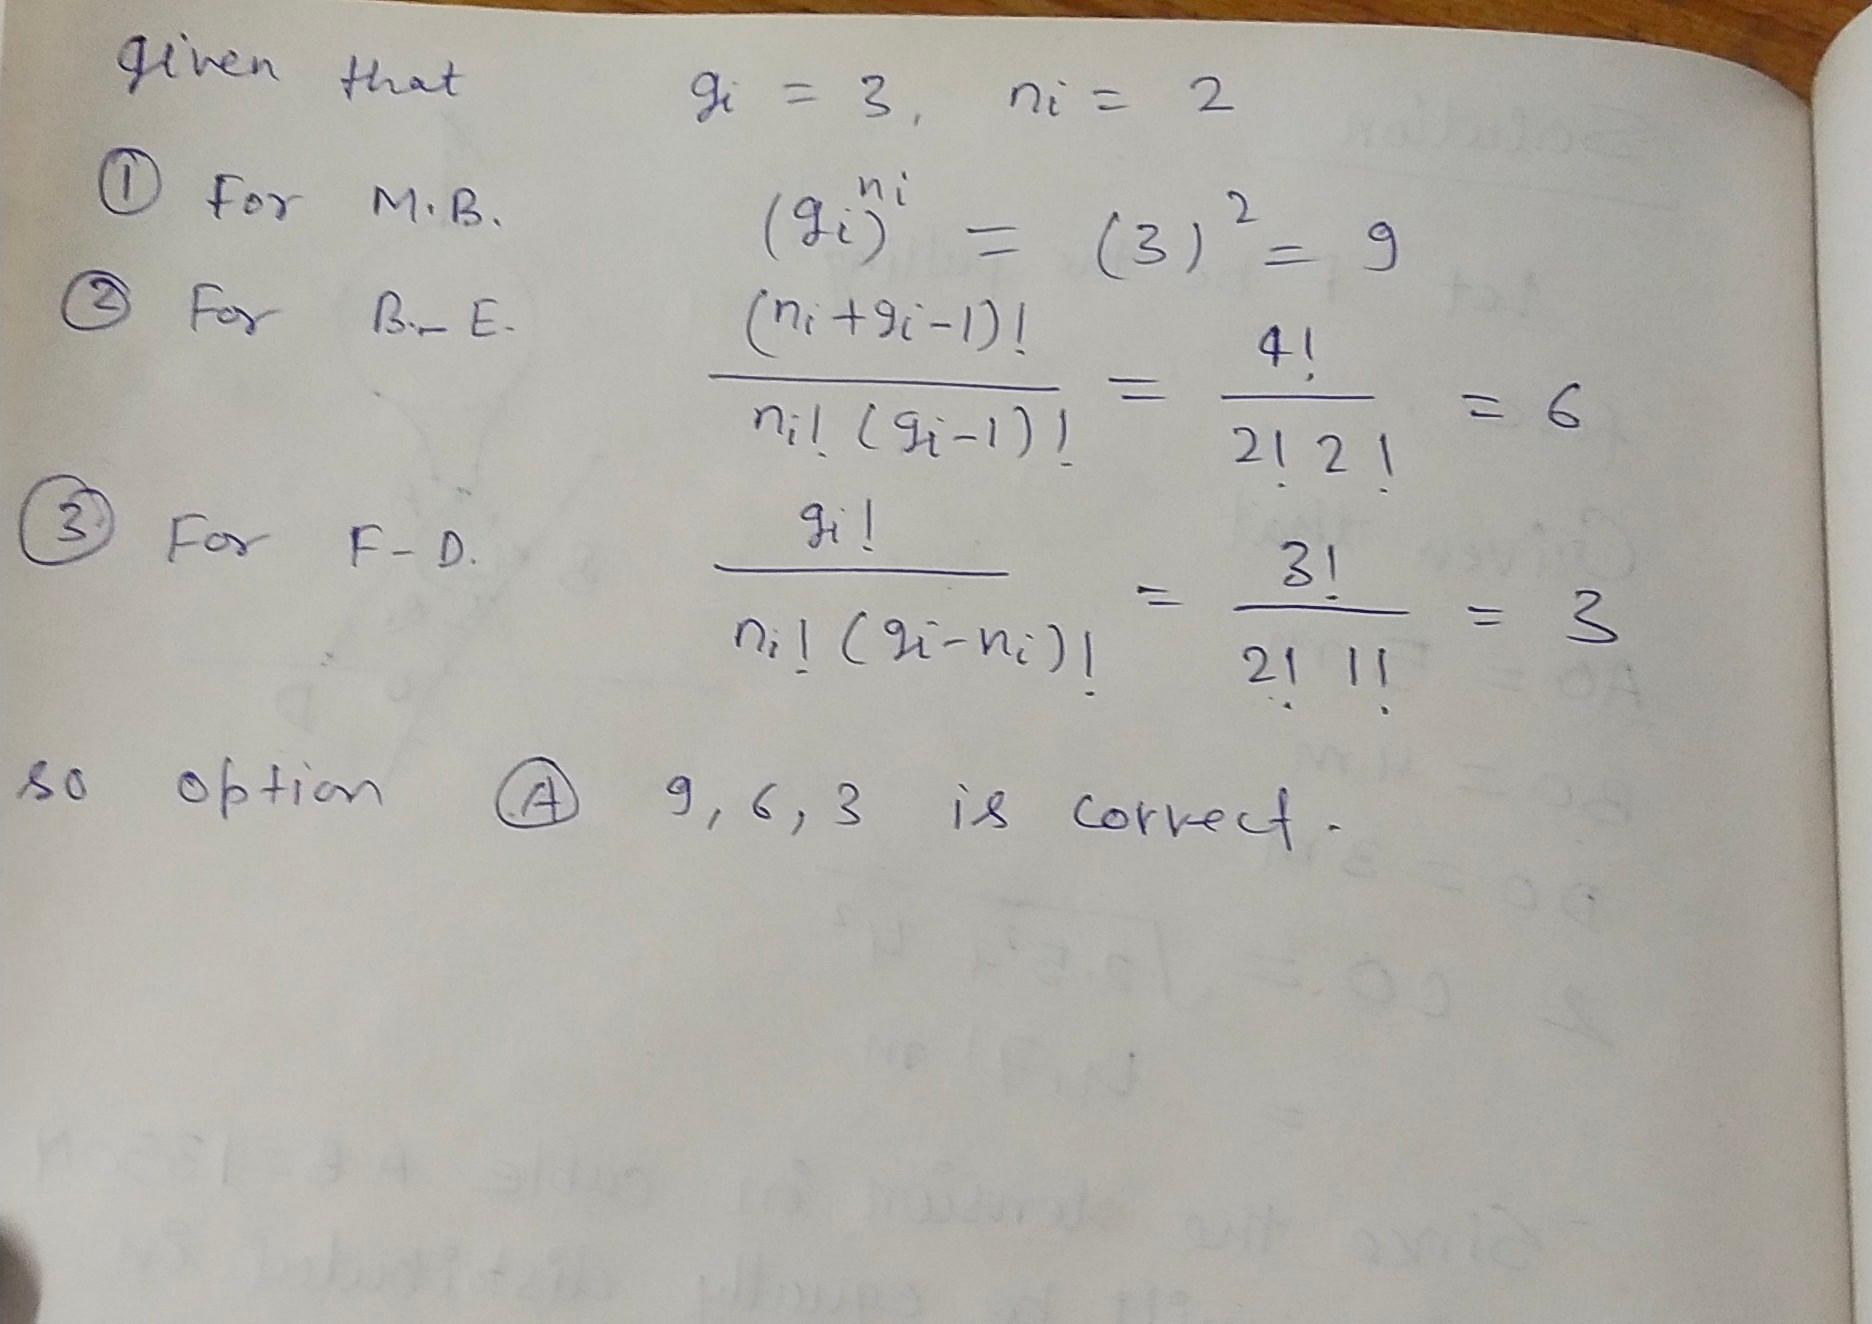 given that gi = 3, ni = 2
① For M.B. (gi)^ni = (3)^2 = 9
② For B.-E. (ni+gi-1)! / ni! (gi-1)! = 4! / 2! 2! = 6
③ For F-D. gi! / ni! (gi-ni)! = 3! / 2! 1! = 3
so option Ⓐ 9, 6, 3 is correct.